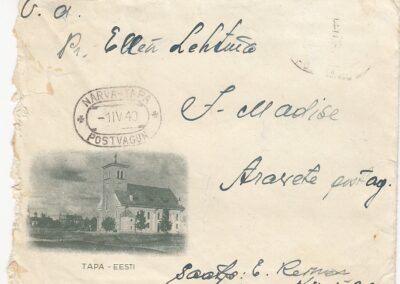 V. a.
Pr. Ellen Lehtma
NARVA-TAPA
-1 IV 40
POSTVAGUN
J-Madise
Aravete postag.
TAPA - EESTI
Saatja: E.